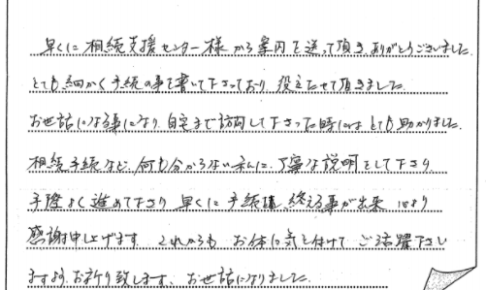 早くに相続支援センター様から案内を送って頂きありがとうございました。
とても細かく手続の事を書いて下さっており、役立たせて頂きました。
お世話になる事になり、自宅まで訪問して下さった時にはとても助かりました。
相続手続など、何も分からない私に、丁寧な説明をして下さり
手際よく進めて下さり早くに手続様、終える事が出来、心より
感謝申し上げます。これからも お体に気を付けて ご活躍下さい
ますよう、お祈り致します。お世話になりました。